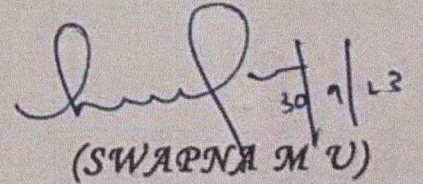 30/9/23
(SWAPNA M U)